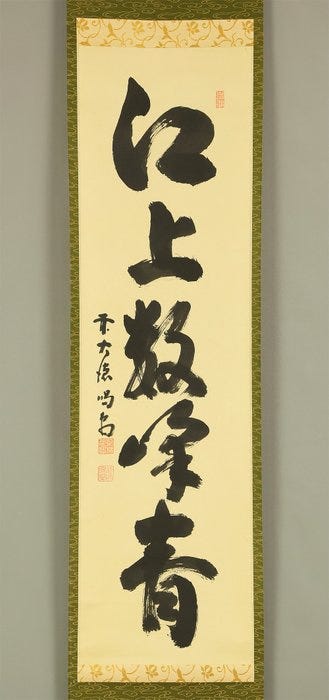 江上数峰青
前大徳